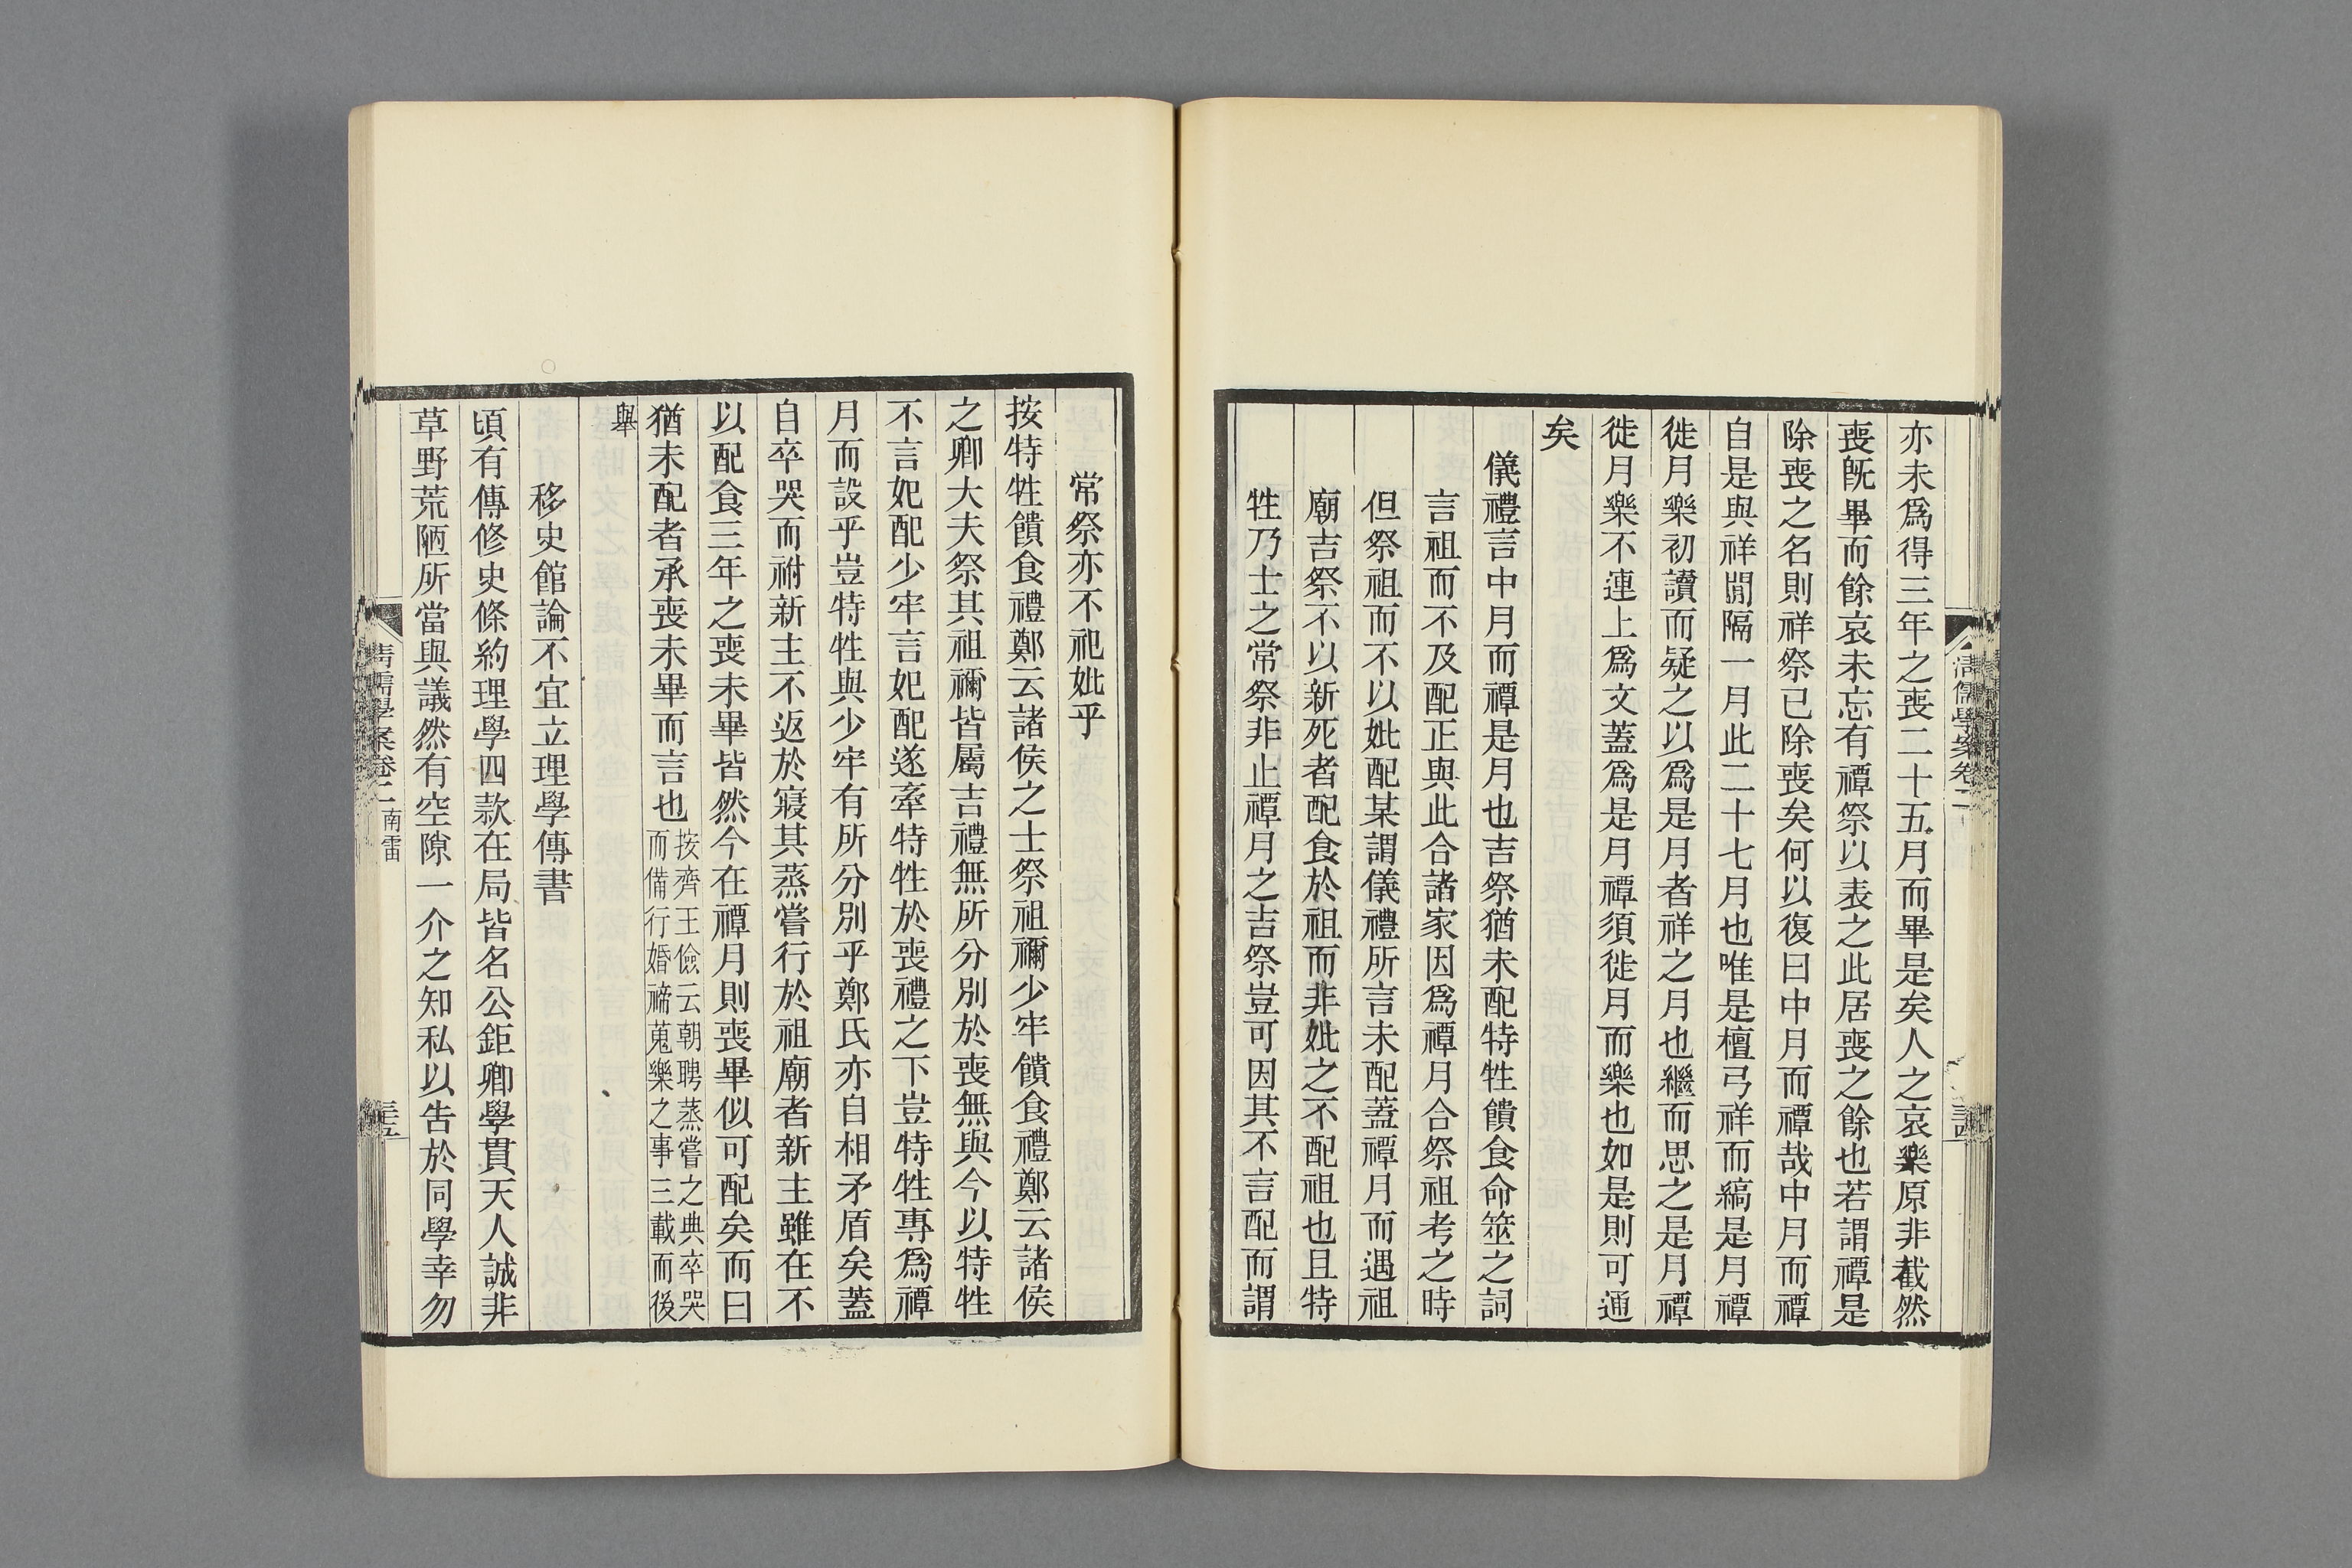 亦未爲得三年之喪二十五月而畢是矣人之哀樂原非截然
喪旣畢而餘哀未忘有禫祭以表之此居喪之餘也若謂禫是
除喪之名則祥祭已除喪矣何以復曰中月而禫哉中月而禫
自是與祥閒隔一月此二十七月也唯是檀弓祥而縞是月禫
徙月樂初讀而疑之以爲是月者祥之月也繼而思之是月禫
徙月樂不連上爲文蓋爲是月禫須徙月而樂也如是則可通
矣
儀禮言中月而禫是月也吉祭猶未配特牲饋食命筮之詞
言祖而不及配正與此合諸家因爲禫月合祭祖考之時
但祭祖而不以妣配某謂儀禮所言未配蓋禫月而遇祖
廟吉祭不以新死者配食於祖而非妣之不配祖也且特
牲乃士之常祭非止禫月之吉祭豈可因其不言配而謂
清儒學案卷二
常祭亦不祀妣乎
按特牲饋食禮鄭云諸侯之士祭祖禰少牢饋食禮鄭云諸侯
之卿大夫祭其祖禰皆屬吉禮無所分別於喪無與今以特牲
不言妃配少牢言妃配遂牽特牲於喪禮之下豈特牲專爲禫
月而設乎豈特牲與少牢有所分別乎鄭氏亦自相矛盾矣蓋
自卒哭而祔新主不返於寢其蒸嘗行於祖廟者新主雖在不
以配食三年之喪未畢皆然今在禫月則喪畢似可配矣而曰
猶未配者承喪未畢而言也按齊王儉云朝聘蒸嘗之典卒哭
而備行婚禘蒐樂之事三載而後
舉
移史館論不宜立理學傳書
頃有傳修史條約理學四款在局皆名公鉅卿學貫天人誠非
草野荒陋所當與議然有空隙一介之知私以吿於同學幸勿
清儒學案卷二 南雷
三五